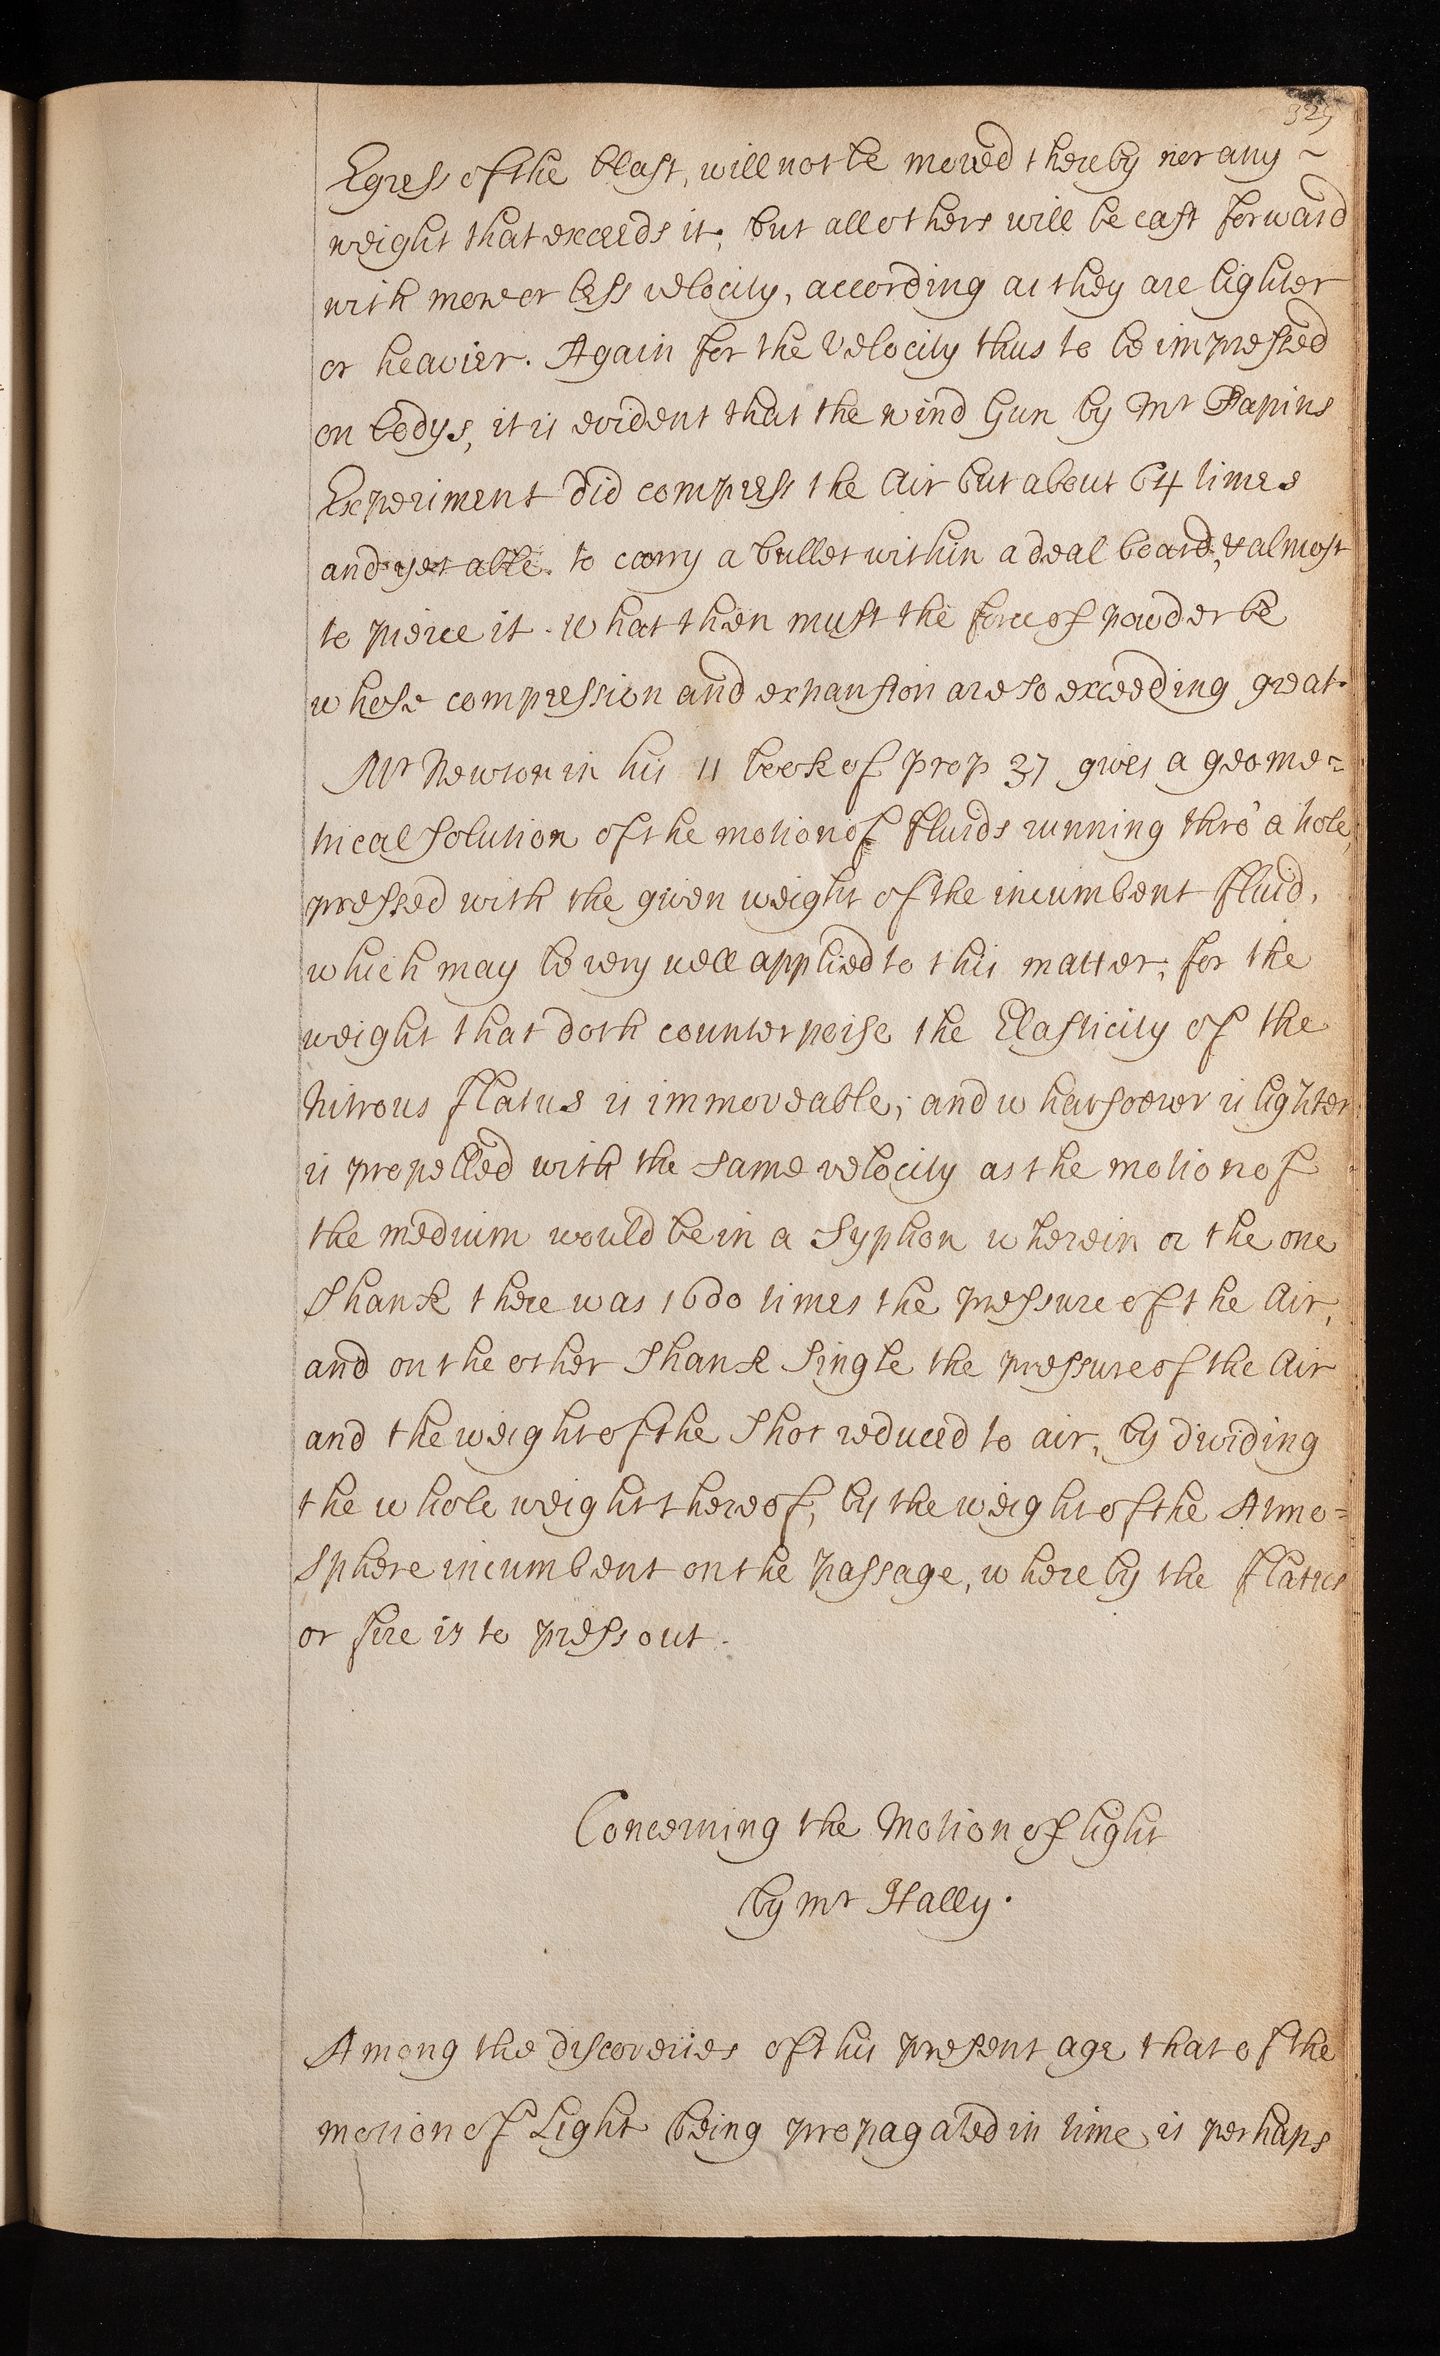 325
Egress of the blast, will not be moved thereby nor any ~
weight that exceeds it; but all others will be cast forward
with more or less velocity, according as they are lighter
or heavier. Again for the Velocity thus to be impressed
on bodys, it is evident that the wind Gun by Mr Papins
Experiment did compress the Air but about 64 times
and yet able to carry a bullet within a deal board, & almost
to pierce it. What then must the force of powder be
whose compression and expansion are so exceeding great.
Mr Newton in his 11 book of prop 37 gives a geome=
trical solution of the motion of fluids running thro' a hole,
pressed with the given weight of the incumbent fluid,
which may be very well applied to this matter; for the
weight that doth counterpoise the Elasticity of the
Nitrous flatus is immoveable; and whatsoever is lighter
is propelled with the same velocity as the motion of
the medium would be in a Syphon wherein o the one
Shank there was 1600 times the pressure of the Air,
and on the other Shank Single the pressure of the Air
and the weight of the Shot reduced to air, by dividing
the whole weight thereof, by the weight of the Atmo=
sphere incumbent on the passage, whereby the flatus
or fire is to press out.
Concerning the Motion of light
by Mr Hally.
Among the discoveries of this present age that of the
motion of Light being propagated in time is perhaps